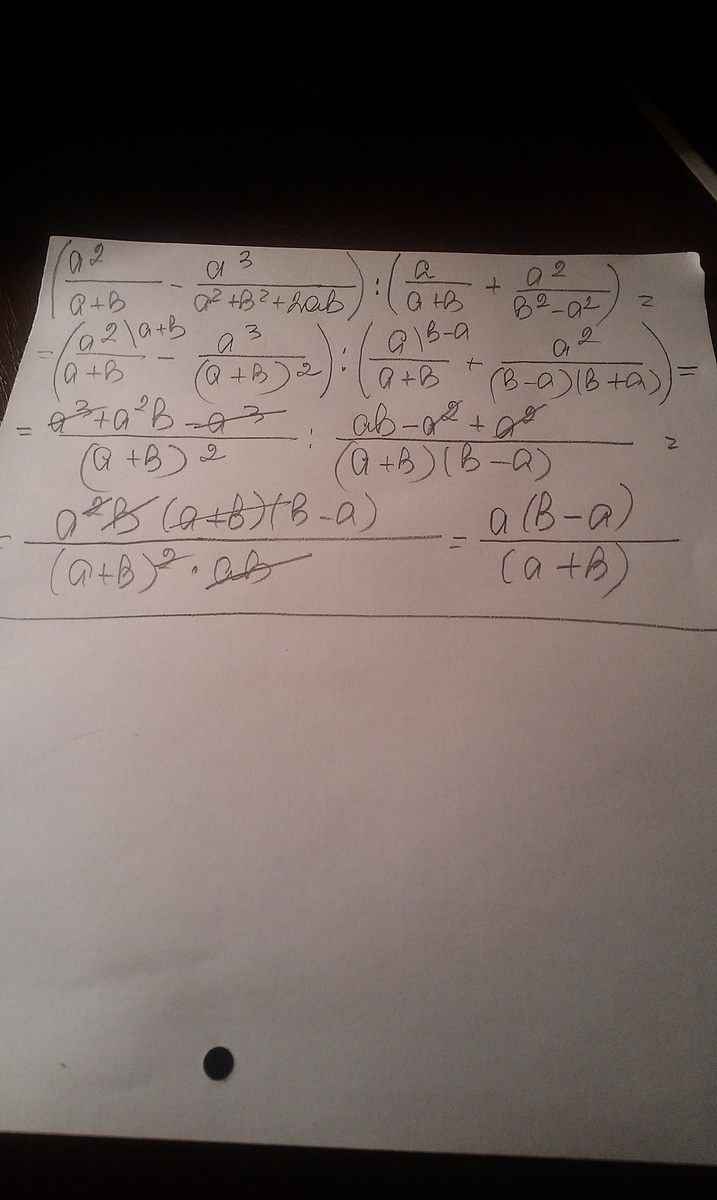 (a²/(a+B) - a³/(a²+B²+2aB)) : (a/(a+B) + a²/(B²-a²)) =
= (a²\a+B/(a+B) - a³/(a+B)²) : (a\B-a/(a+B) + a²/((B-a)(B+a))) =
= (a³+a²B-a³)/(a+B)² : (aB-a²+a²)/((a+B)(B-a)) =
= (a²B(a+B)(B-a))/((a+B)²·aB) = a(B-a)/(a+B)